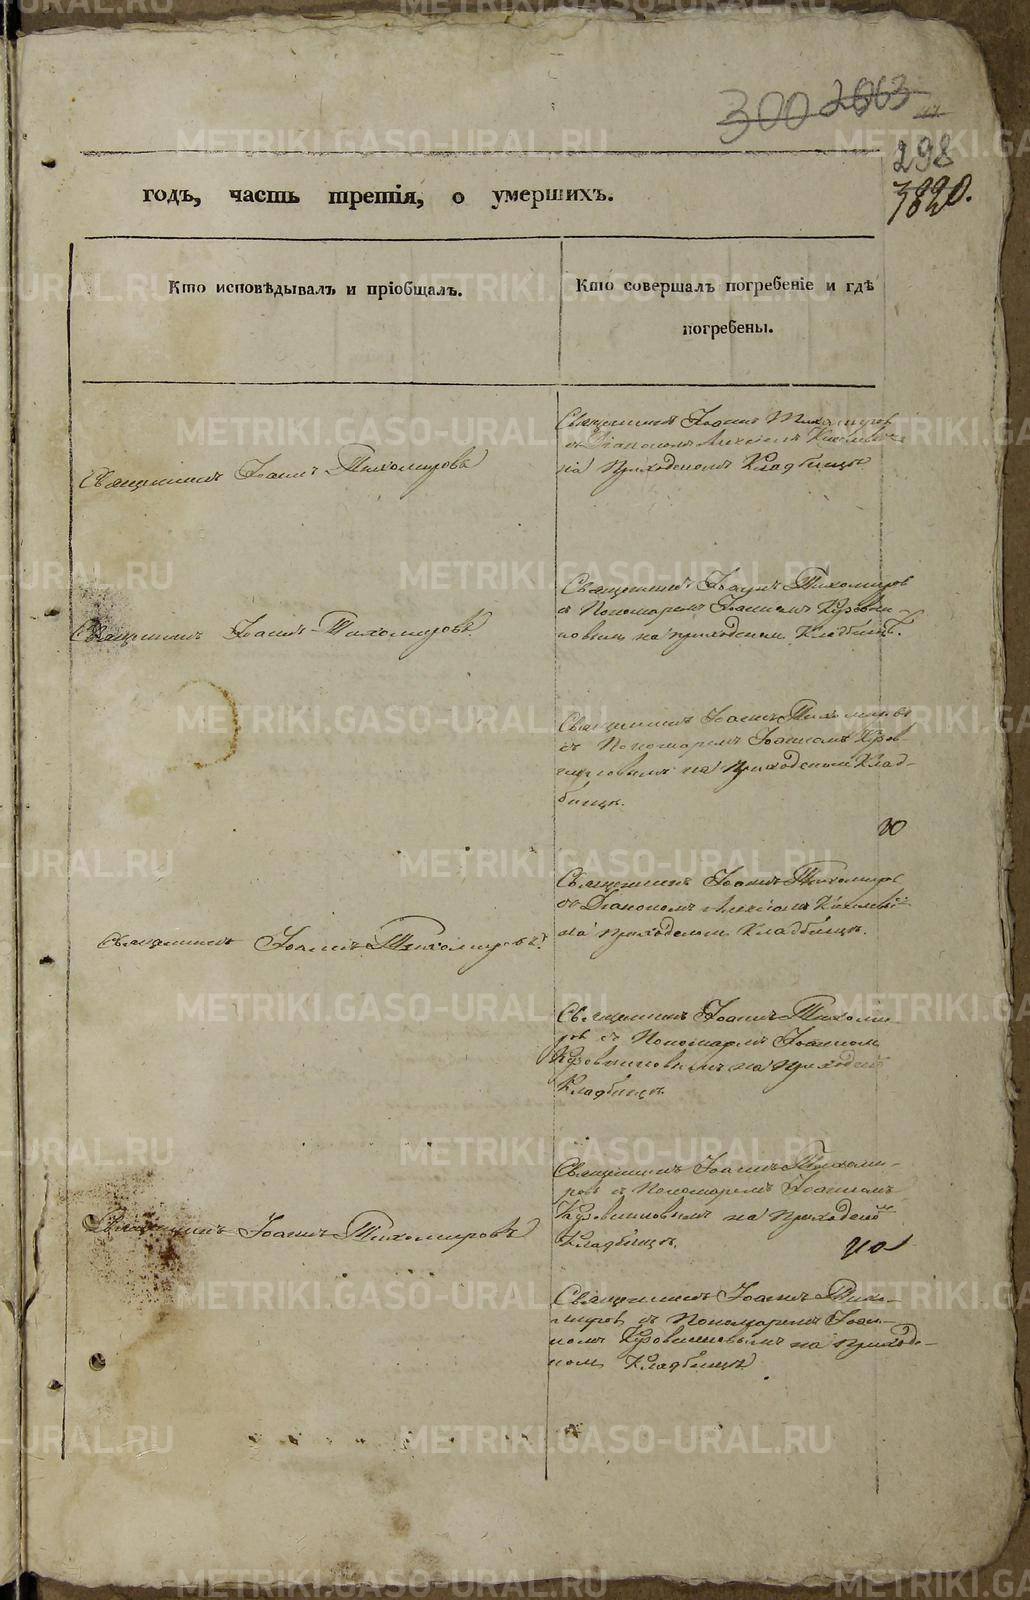 300 2663
298
3820.
годъ, часть третія, о умершихъ.
Кто исповѣдывалъ и пріобщалъ.
Кто совершалъ погребеніе и гдѣ
погребены.
Священникъ Іоаннъ Тихомировъ
Священникъ Іоаннъ Тихомиров
съ Діакономъ Алексіемъ
на Приходскомъ Кладбищѣ
Священникъ Іоаннъ Тихомировъ
Священникъ Іоаннъ Тихомиров
съ Пономаремъ Іоанномъ Кузовни-
ковымъ на приходском Кладбищѣ.
Священникъ Іоаннъ Тихомировъ
съ Пономаремъ Іоанномъ Кузов
никовымъ на Приходском Клад-
бищѣ.
Священникъ Іоаннъ Тихомировъ.
Священникъ Іоаннъ Тихомиров
съ Діакономъ Алексіемъ
на приходском Кладбищѣ.
Священникъ Іоаннъ Тихоми
ров съ Пономаремъ Іоанном
Кузовниковымъ на Приходском
Кладбищѣ.
Священникъ Іоаннъ Тихомировъ
Священникъ Іоаннъ Тихоми-
ров съ Пономаремъ Іоанномъ
Кузовниковымъ на Приходском
Кладбищѣ.
Священникъ Іоаннъ Тихо-
миров съ Пономаремъ Іоан-
номъ Кузовниковымъ на приходс-
комъ Кладбищѣ
METRIKI.GASO-URAL.RU